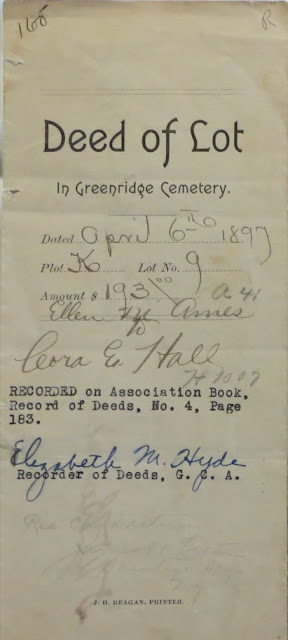 160 R
Deed of Lot
In Greenridge Cemetery.
Dated April 6th 1897
Plot K Lot No. 9
Amount $ 193.00 A 41
Ellen M. Ames
to
Cora E. Hall
RECORDED on Association Book,
Record of Deeds, No. 4, Page
183.
Elizabeth M. Hyde
Recorder of Deeds, G. C. A.
J. H. REAGAN, PRINTER.